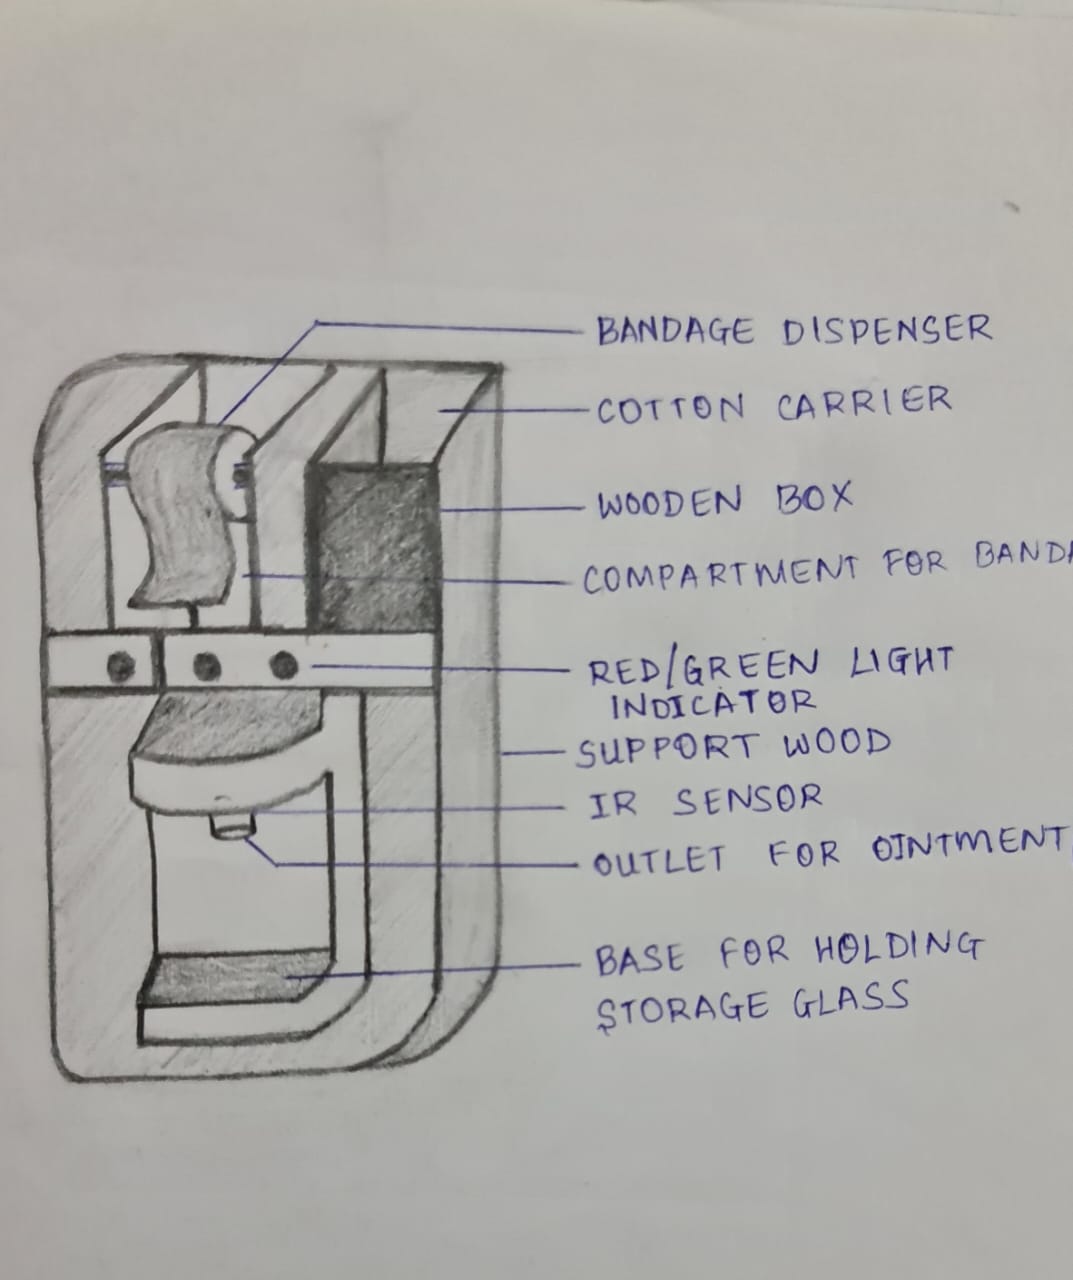 BANDAGE DISPENSER
COTTON CARRIER
WOODEN BOX
COMPARTMENT FOR
RED/GREEN LIGHT
INDICATOR
SUPPORT WOOD
IR SENSOR
OUTLET FOR OINTMENT
BASE FOR HOLDING
STORAGE GLASS